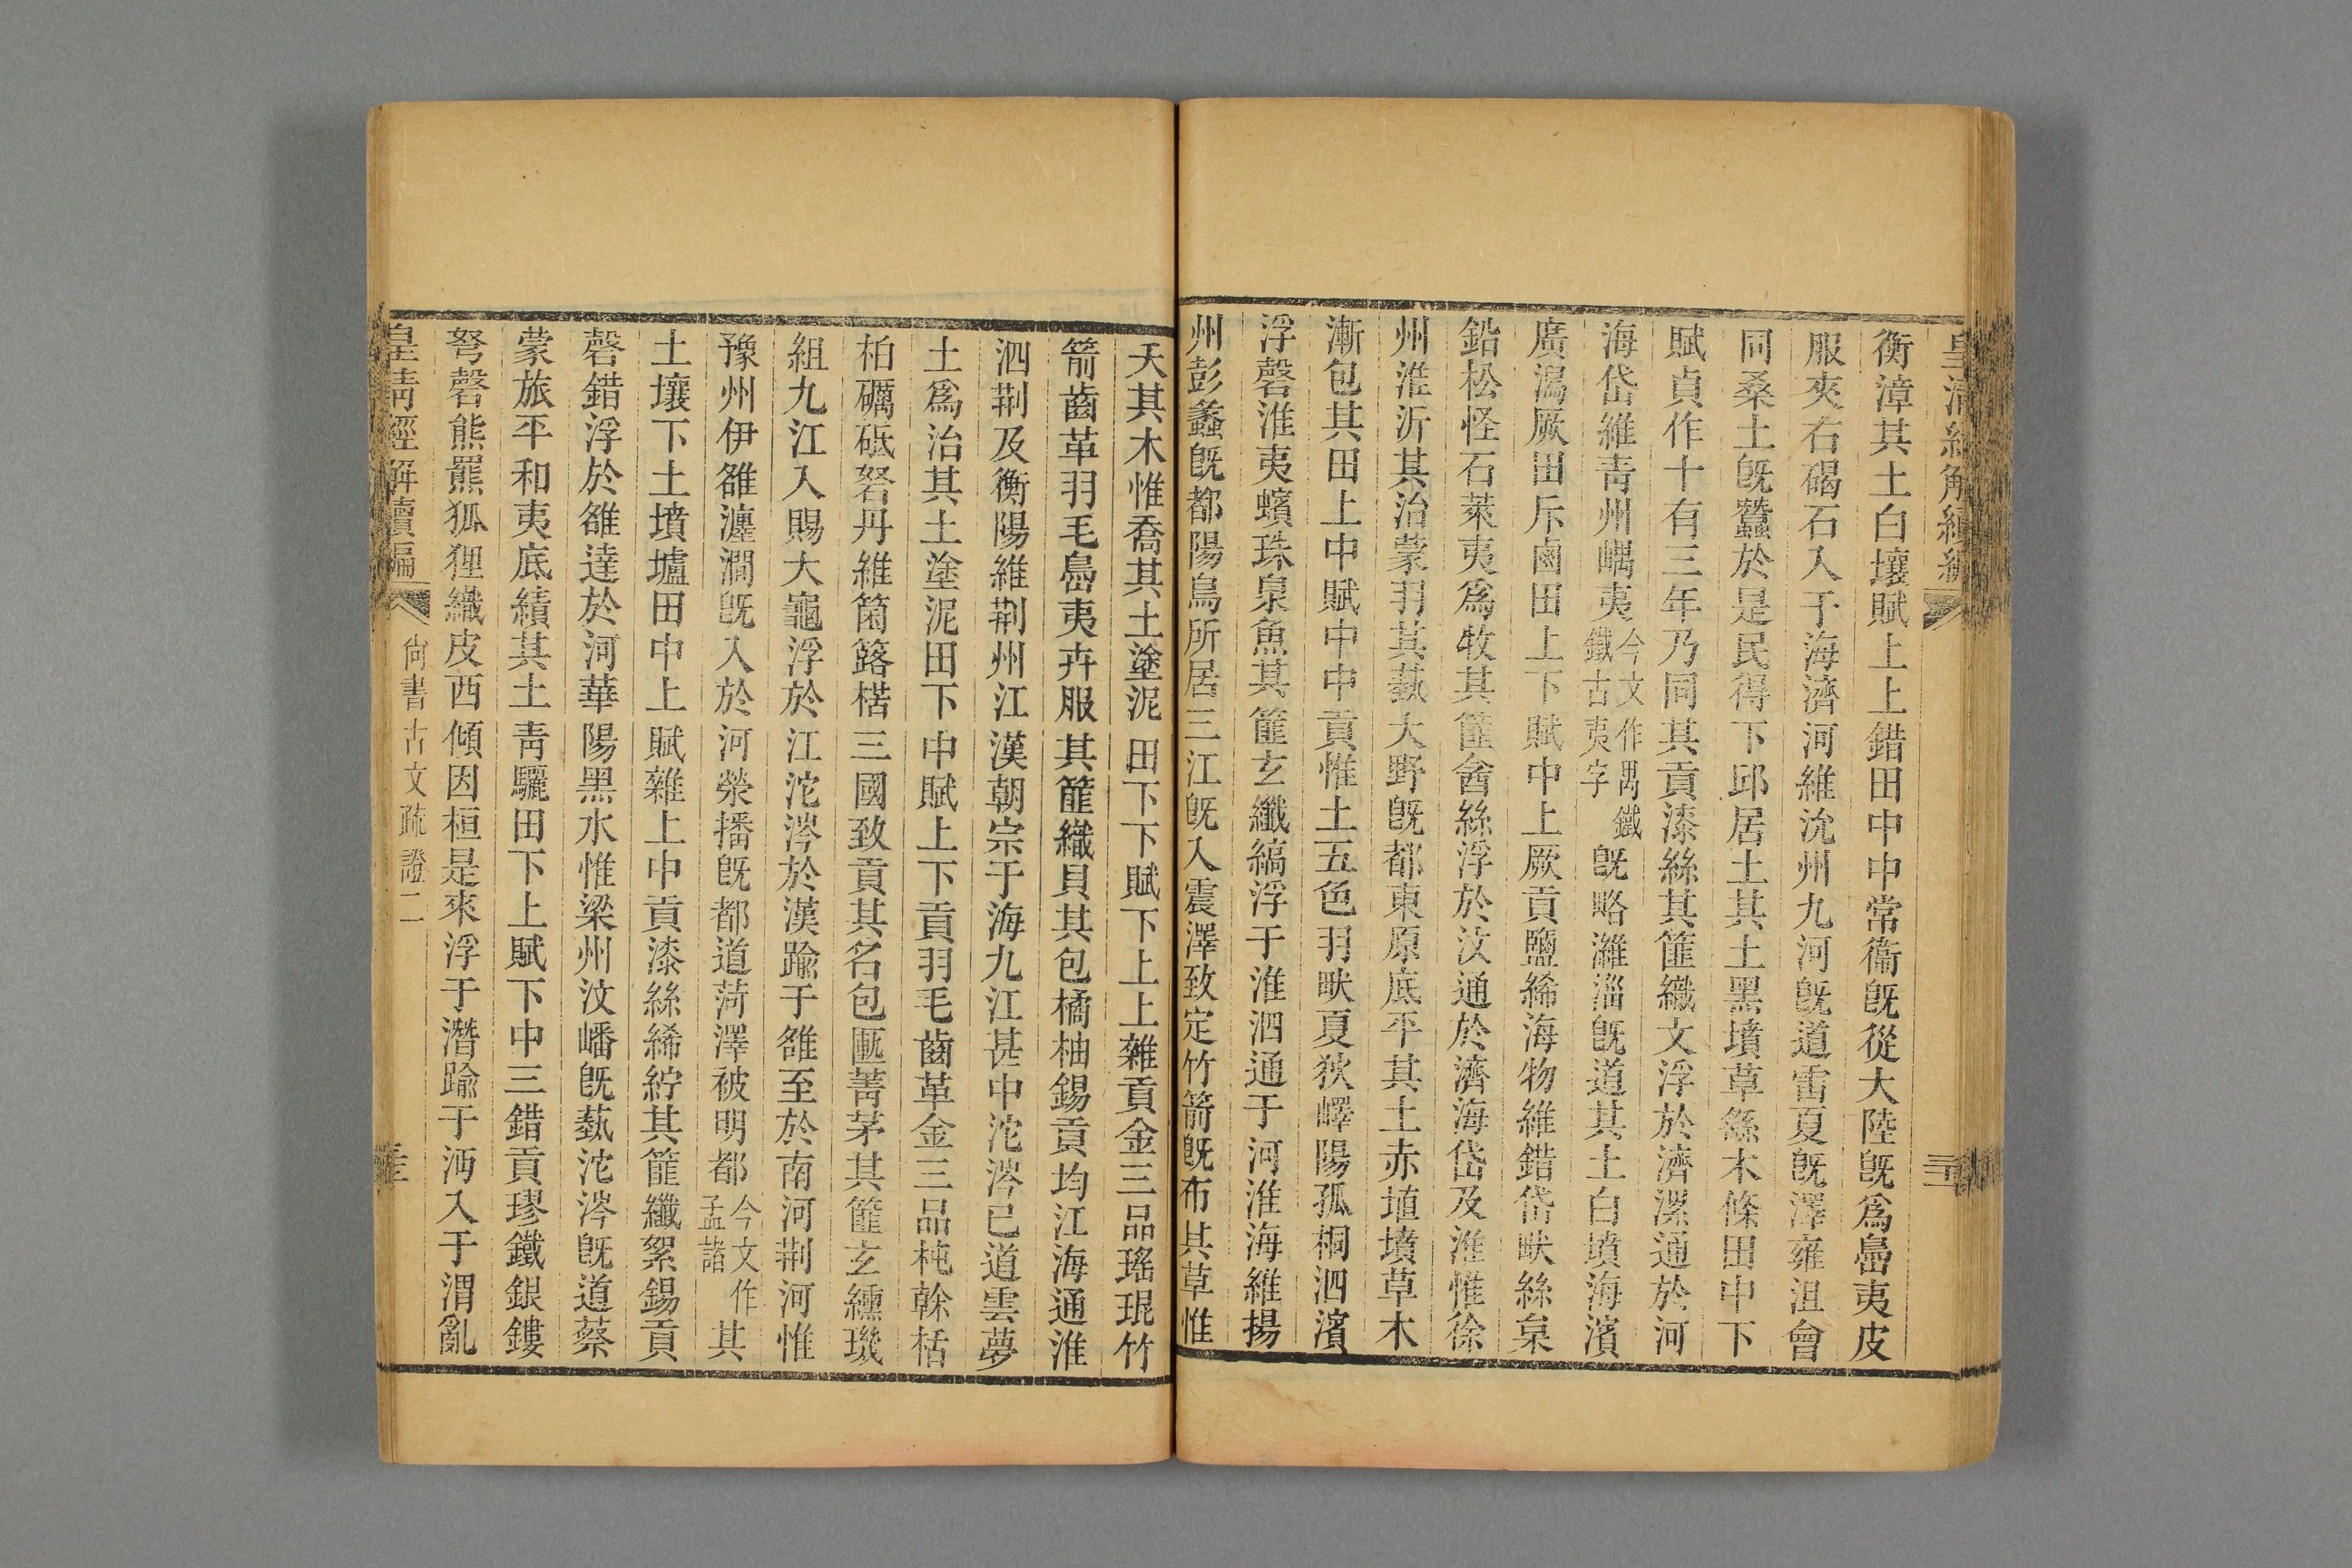 皇清經解續編
三十
衡漳其土白壤賦上上錯田中中常衞旣從大陸旣爲島夷皮
服夾右碣石入于海濟河維沇州九河旣道雷夏旣澤雍沮會
同桑土旣蠶於是民得下邱居土其土黑墳草繇木條田中下
賦貞作十有三年乃同其貢漆絲其篚織文浮於濟漯通於河
海岱維靑州嵎夷今文作禺鐵鐵古夷字旣略濰淄旣道其土白墳海濱
廣潟厥田斥鹵田上下賦中上厥貢鹽絺海物維錯岱畎絲枲
鉛松怪石萊夷爲牧其篚酓絲浮於汶通於濟海岱及淮惟徐
州淮沂其治蒙羽其蓺大野旣都東原底平其土赤埴墳草木
漸包其田上中賦中中貢惟土五色羽畎夏狄嶧陽孤桐泗濱
浮磬淮夷蠙珠臮魚其篚玄纖縞浮于淮泗通于河淮海維揚
州彭蠡旣都陽鳥所居三江旣入震澤致定竹箭旣布其草惟
夭其木惟喬其土塗泥田下下賦下上上雜貢金三品瑤琨竹
箭齒革羽毛島夷卉服其篚織貝其包橘柚錫貢均江海通淮
泗荆及衡陽維荆州江漢朝宗于海九江甚中沱涔已道雲夢
土爲治其土塗泥田下中賦上下貢羽毛齒革金三品杶榦栝
柏礪砥砮丹維箘簬楛三國致貢其名包匭菁茅其篚玄纁璣
組九江入賜大龜浮於江沱涔於漢踰于雒至於南河荆河惟
豫州伊雒瀍澗旣入於河滎播旣都道菏澤被明都今文作孟諸其
土壤下土墳壚田中上賦雜上中貢漆絲絺紵其篚纖絮錫貢
磬錯浮於雒達於河華陽黑水惟梁州汶嶓旣蓺沱涔旣道蔡
蒙旅平和夷底績其土靑驪田下上賦下中三錯貢璆鐵銀鏤
砮磬熊羆狐狸織皮西傾因桓是來浮于潛踰于沔入于渭亂
皇淸經解續編
尚書古文疏證二